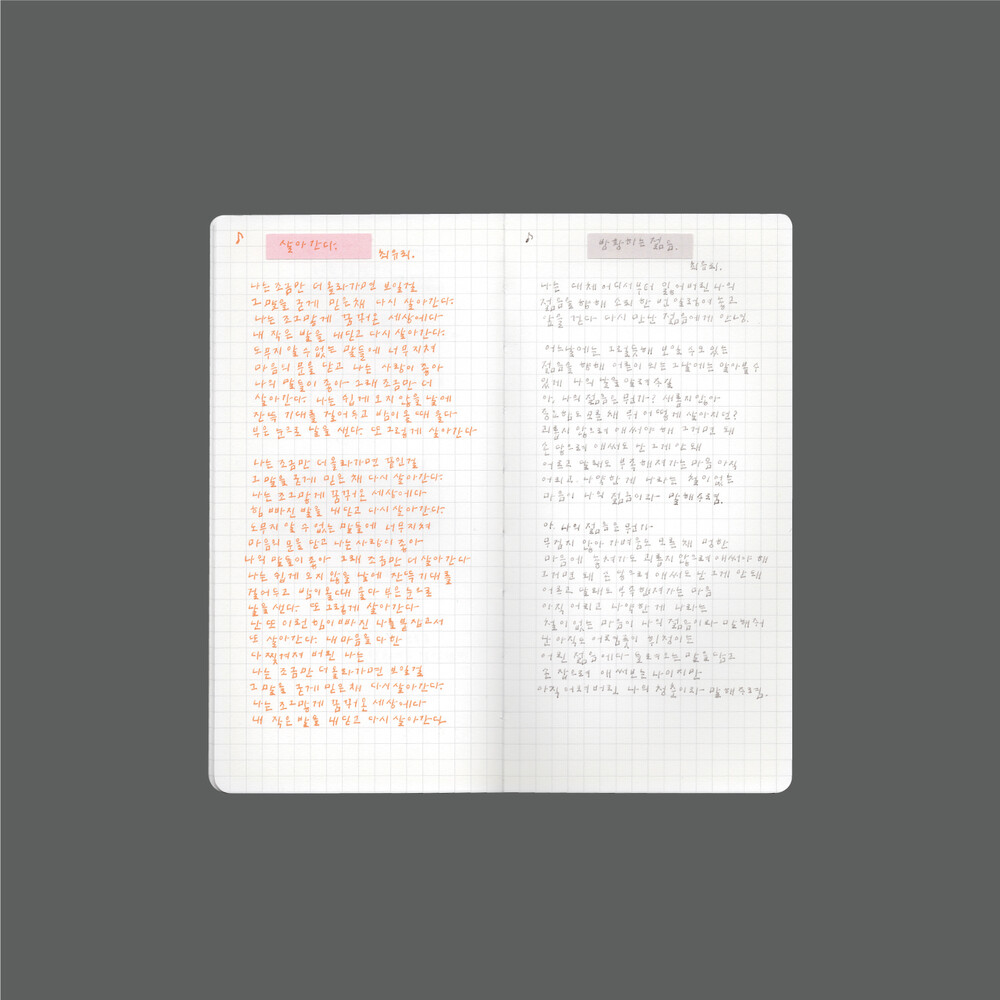 ♪ 살아간다.
최유리.
나는 조금만 더 올라가면 보일걸
그 말을 굳게 믿은 채 다시 살아간다.
나는 조그맣게 꿈꿔온 세상에다
내 작은 발을 내딛고 다시 살아간다.
도무지 알 수 없는 말들에 너무 지쳐
마음의 문을 닫고 나는 사람이 좋아
나의 말들이 좋아 그래 조금만 더
살아간다. 나는 쉽게 오지 않을 날에
잔뜩 기대를 걸어두고 밤이 올 때 울다
부은 눈으로 날을 샌다. 또 그렇게 살아간다
나는 조금만 더 올라가면 꿈인걸
그 말을 굳게 믿은 채 다시 살아간다.
나는 조그맣게 꿈꿔온 세상에다
힘 빠진 발을 내딛고 다시 살아간다.
도무지 알 수 없는 말들에 너무 지쳐
마음의 문을 닫고 나는 사람이 좋아
나의 말들이 좋아 그래 조금만 더 살아간다
나는 쉽게 오지 않을 날에 잔뜩 기대를
걸어두고 밤이 올 때 울다 부은 눈으로
날을 샌다. 또 그렇게 살아간다
난 또 이런 힘이 빠진 나를 붙잡고서
또 살아간다. 내 마음을 다한
다 찢겨져 버린 나는
나는 조금만 더 올라가면 보일걸
그 말을 굳게 믿은 채 다시 살아간다.
나는 조그맣게 꿈꿔온 세상에다
내 작은 발을 내딛고 다시 살아간다
♪ 방황하는 젊음.
최유리.
나는 대체 어디서부터 잃어버린 나의
젊음을 향해 소리 한 번 일으켜 놓고
삶을 걷다 다시 만난 젊음에게 안녕.
어느날에는 그럴듯해 보일 수도 있는
젊음을 향해 어른이 되는 그날에는 알아볼 수
있게 나의 날을 알려주길
아, 나의 젊음은 뭔가? 서툴지 않아
중요함도 모른 채 뭐 어떻게 살아지면?
외롭지 않으려 애써야 해 그거면 돼
손 잡으려 애써도 안 그게 안 돼
어르고 달래도 부족해져가는 마음 아직
어리고 나약한 게 나라는 철이 없는
마음이 나의 젊음이라 말해주오.
아, 나의 젊음은 뭔가
무겁지 않아 가벼움도 모른 채 멍한
마음에 눈치가도 외롭지 않으려 애써야 해
그거면 돼 손 잡으려 애써도 안 그게 안 돼
어르고 달래도 부족해져가는 마음
아직 어리고 나약한 게 나라는
철이 없는 마음이 나의 젊음이라 말해줘
난 아직은
어린 젊음에다
손 잡으려 애써보는 나이지만
아직 어려버린 나의 청춘이라 말해주오.